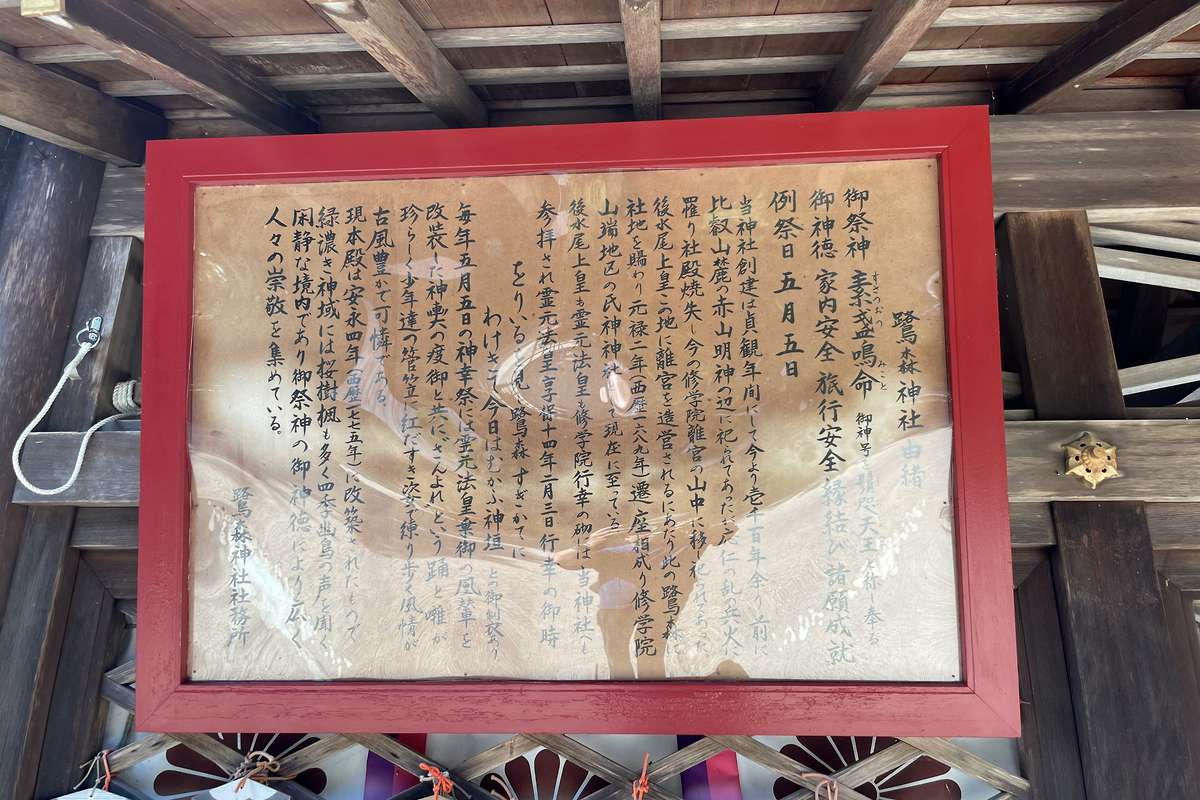 鷺森神社由緒
御祭神 素盞嗚命 御神号を 天王と称し奉る
すさのおの みこと
御神徳 家内安全 旅行安全 縁結び 諸願成就
例祭日 五月五日
当神社創建は貞観年間にして今より壱千百年余り前に
比叡山麓の赤山明神の辺に祀られてあったが応仁の乱の兵火に
罹り社殿焼失し今の修学院離宮の山中に移し祀られてあった
後水尾上皇この地に離宮を造営されるにあたり此の鷺森に
社地を賜わり元禄二年(西歴一六八九年)遷座相成り修学院
山端地区の氏神神社 て現在に至っている
後水尾上皇も霊元法皇も修学院行幸の砌には当神社へも
参拝され霊元法皇享保十四年二月三日行幸の御時
をりゐると見 鷺森 すぎがてに
わけきつ 今日はむかふ神垣 との御制歌あり
毎年五月五日の神幸祭には霊元法皇乗御の鳳輦を
改装した神輿の渡御と共に"さんよれ"という踊と囃が
珍らしく少年達の菅笠に紅だすき姿で練り歩く風情が
古風豊かで可憐である。
現本殿は安永四年(西歴一七七五年)に改築されたもので
緑濃き神域には桜樹楓も多く四季幽鳥の声を聞く
閑静な境内であり御祭神の御神徳により広く
人々の崇敬を集めている。
鷺森神社社務所